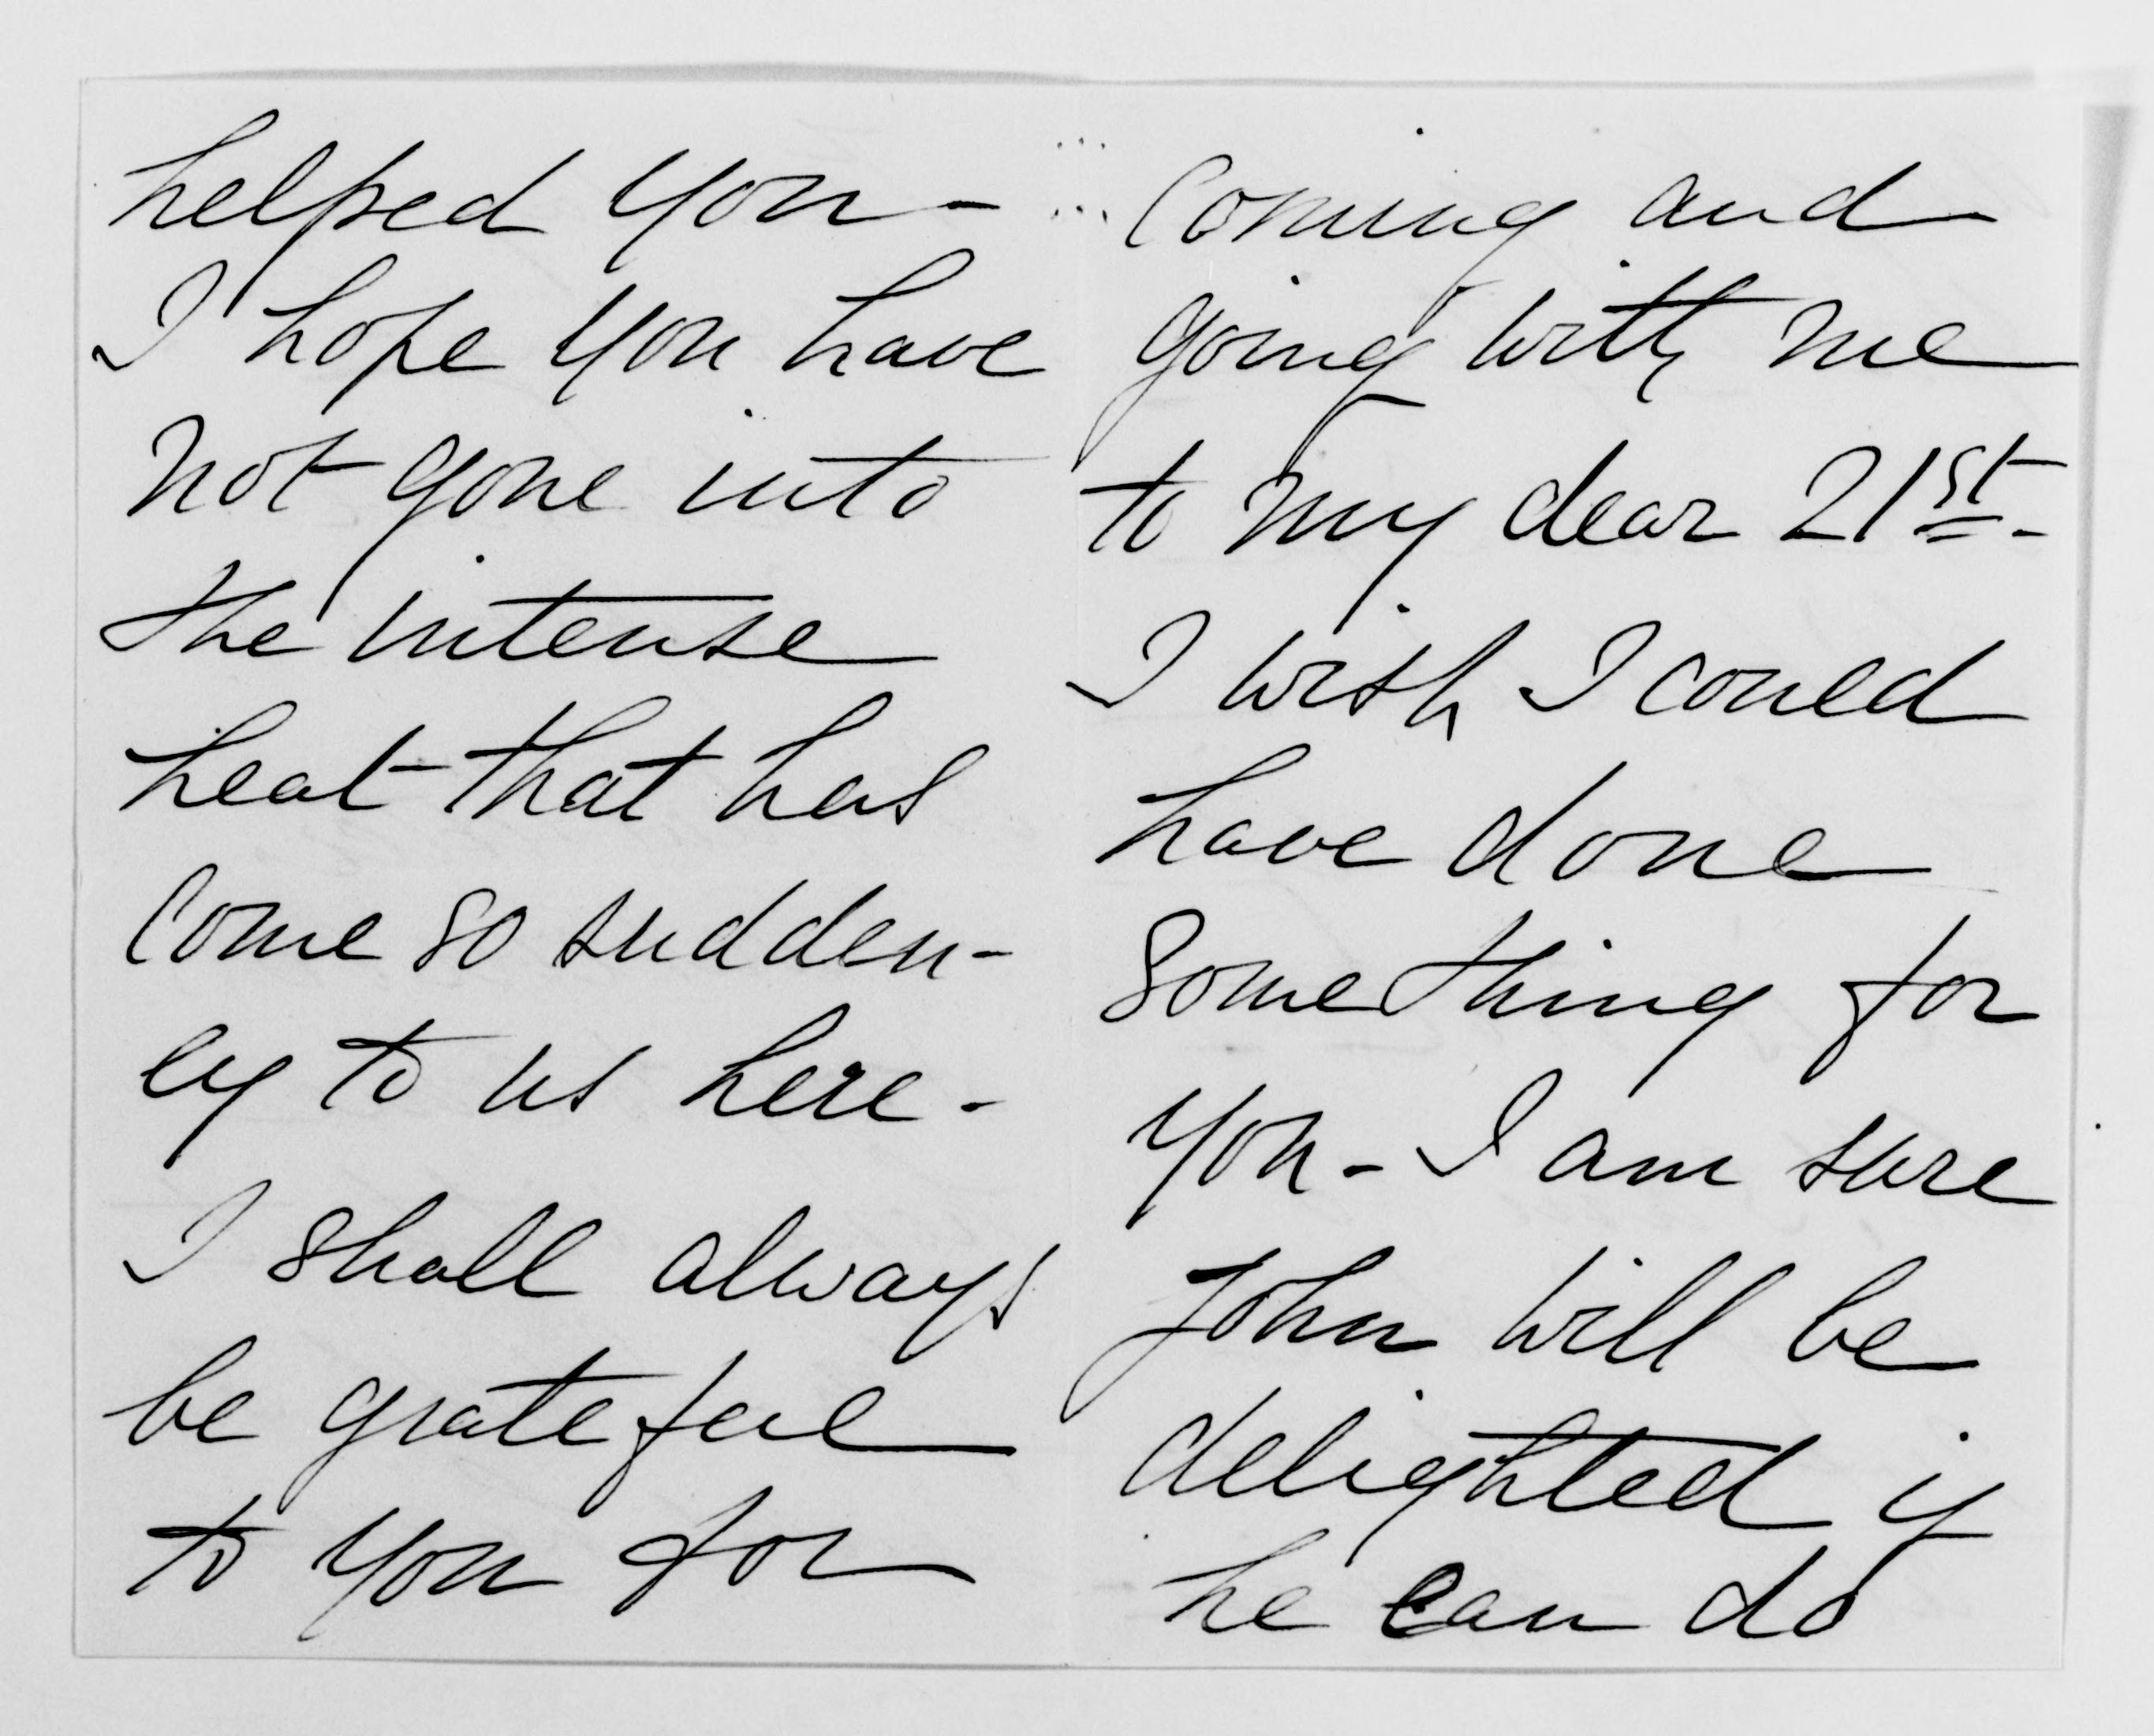 helped you -
I hope you have
not gone into
the intense
heat that has
come so sudden-
ly to us here -
I shall always
be grateful
to you for
coming and
going with me
to my dear 21st -
I wish I could
have done
something for
you - I am sure
John will be
delighted if
he can do